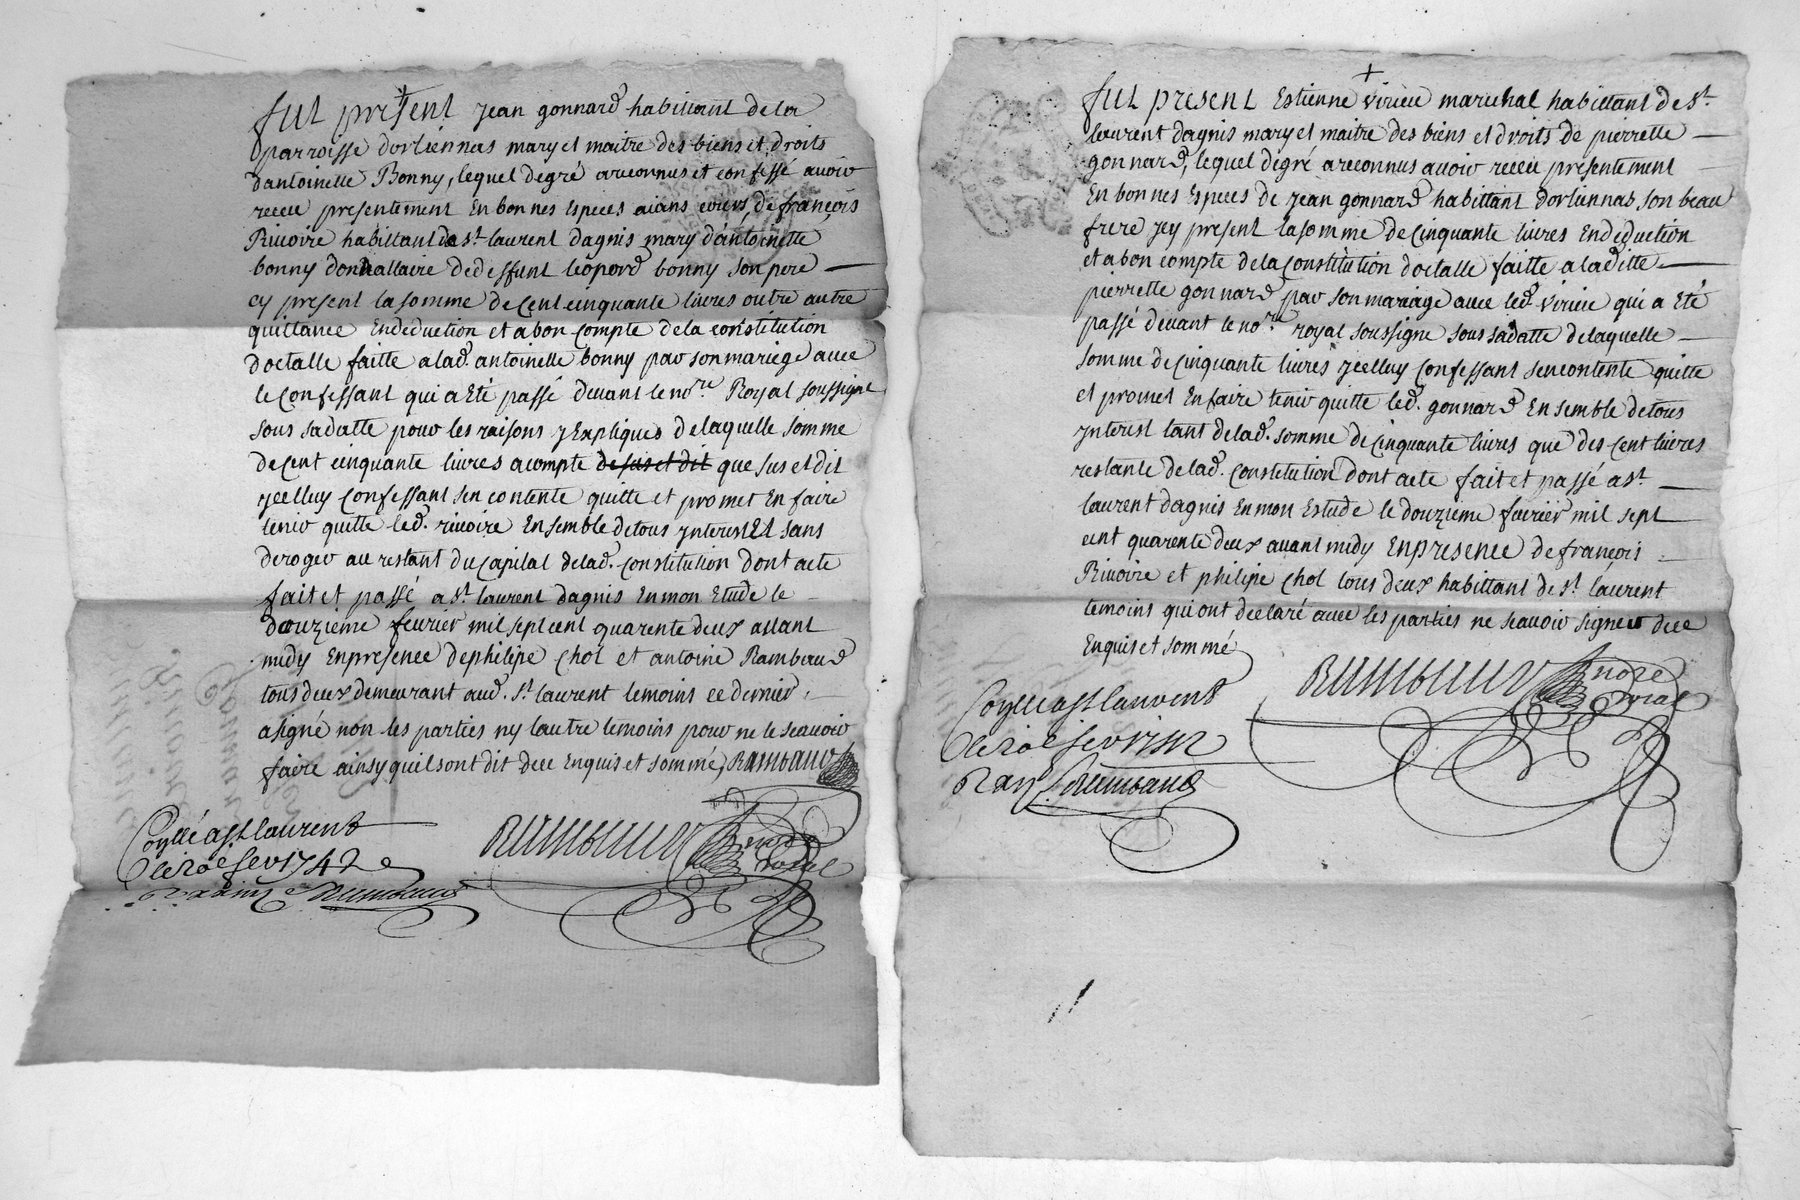 fut present jean gonnard habittant de la
parroisse dorliennas mary et maitre des biens et droits
dantoinette Bonny, lequel degré a reconnus et confessé avoir
receu presentement En bonnes Especes aiant cours, de françois
Rivoire habittant de st. laurent dagnis mary d'antoinette
bonny donnattaire de deffunt leopord bonny son pere
cy present la somme de Cent cinquante livres outre autre
quittance En deduction et a bon Compte de la constitution
doctalle faitte a lad. antoinette bonny par son mariege avec
le Confessant qui a Eté passé devant le nore. Royal soussigné
sous sa datte pour les raisons y Expliques de laquelle somme
de Cent cinquante livres acompte de sus et dit que sus et dit
ycelluy Confessant sen contente quitte et promet En faire
tenir quitte led. rivoire Ensemble de tous ynterest Et sans
deroger au restant du Capital de lad. constitution dont acte
fait et passé a st. laurent dagnis En mon Etude le
douzieme fevrier mil sept cent quarente deux avant
midy En presence de philipe Chol et antoine Rambaud
tous deux demeurant aud. st. laurent temoins ce dernier
a signé non les parties ny lautre temoins pour ne le scavoir
faire ainsy quils ont dit dece Enquis et sommé, Rambaud
Collé a st laurent
le 20e fev 1742
Rambaud
nore
royal
fut present Estienne virieu marechal habittant de st.
laurent dagnis mary et maitre des biens et droits de pierrette
gonnard, lequel degré a reconnus avoir receu présentement
En bonnes Especes de jean gonnard habittant dorliennas son beau
frere jcy present la somme de Cinquante livres En deduction
et a bon compte de la Constitution doctalle faitte a la ditte
pierrette gonnard par son mariage avec led. virieu qui a Eté
passé devant le nore. royal soussigne sous sa datte de laquelle
somme de Cinquante livres ycelluy Confessant sen contente quitte
et promet En faire tenir quitte led. gonnard Ensemble de tous
ynterest tant de lad. somme de Cinquante livres que des Cent livres
restante de lad. Constitution dont acte fait et passé a st.
laurent dagnis En mon Estude le douzieme fevrier mil sept
cent quarente deux avant midy En presence de françois
Rivoire et philipe Chol tous deux habittant de st. laurent
temoins qui ont declaré avec les parties ne scavoir signer dece
Enquis et sommé
Rambaud
nore
royal